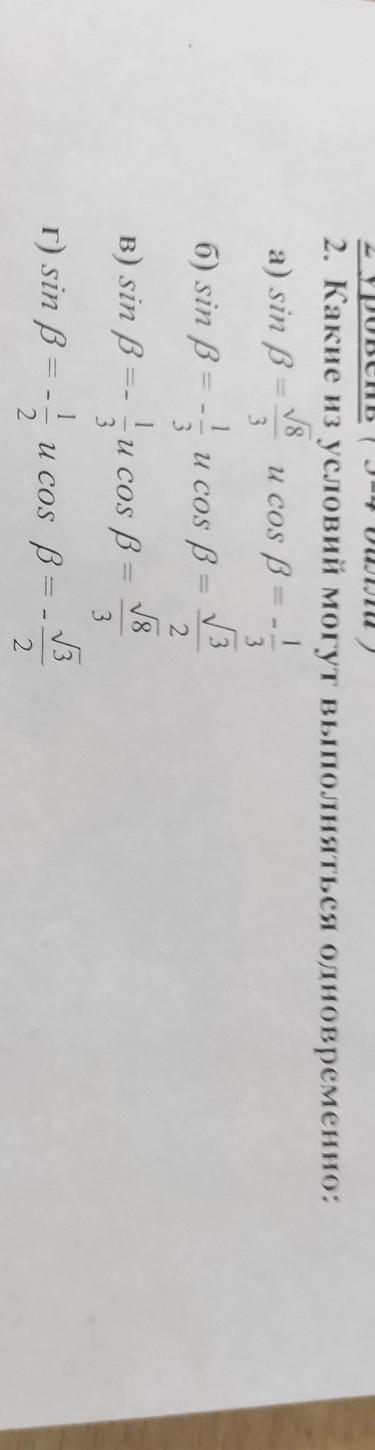 2 уровень ( 3-4 балла )
2. Какие из условий могут выполняться одновременно:
а) sin β = √8/3 и cos β = -1/3
б) sin β = -1/3 и cos β = √3/2
в) sin β =-1/3 и cos β = √8/3
г) sin β = -1/2 и cos β = -√3/2